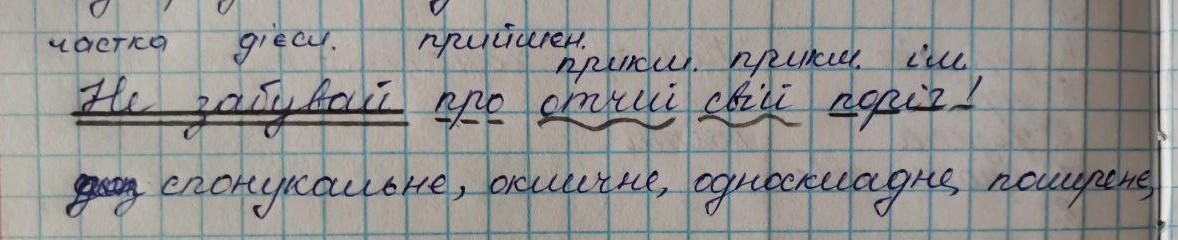 частка дієсл. приймен.
прикм. прикм. ім.
Не забувай про отчий свій поріг!
спонукальне, окличне, односкладне, поширене,